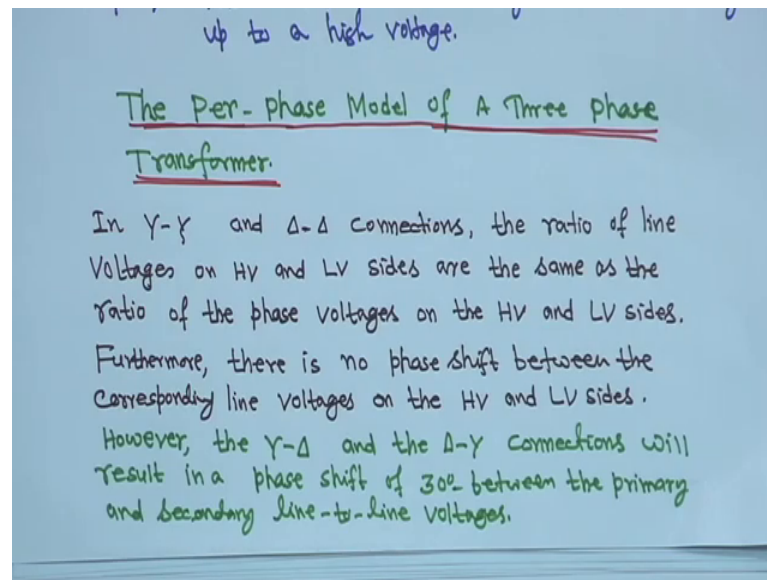 up to a high voltage.
The Per-phase Model of A Three phase
Transformer.
In Y-Y and Δ-Δ connections, the ratio of line
Voltages on HV and LV sides are the same as the
ratio of the phase voltages on the HV and LV sides.
Furthermore, there is no phase shift between the
corresponding line voltages on the HV and LV sides.
However, the Y-Δ and the Δ-Y connections will
result in a phase shift of 30° between the primary
and secondary line-to-line voltages.